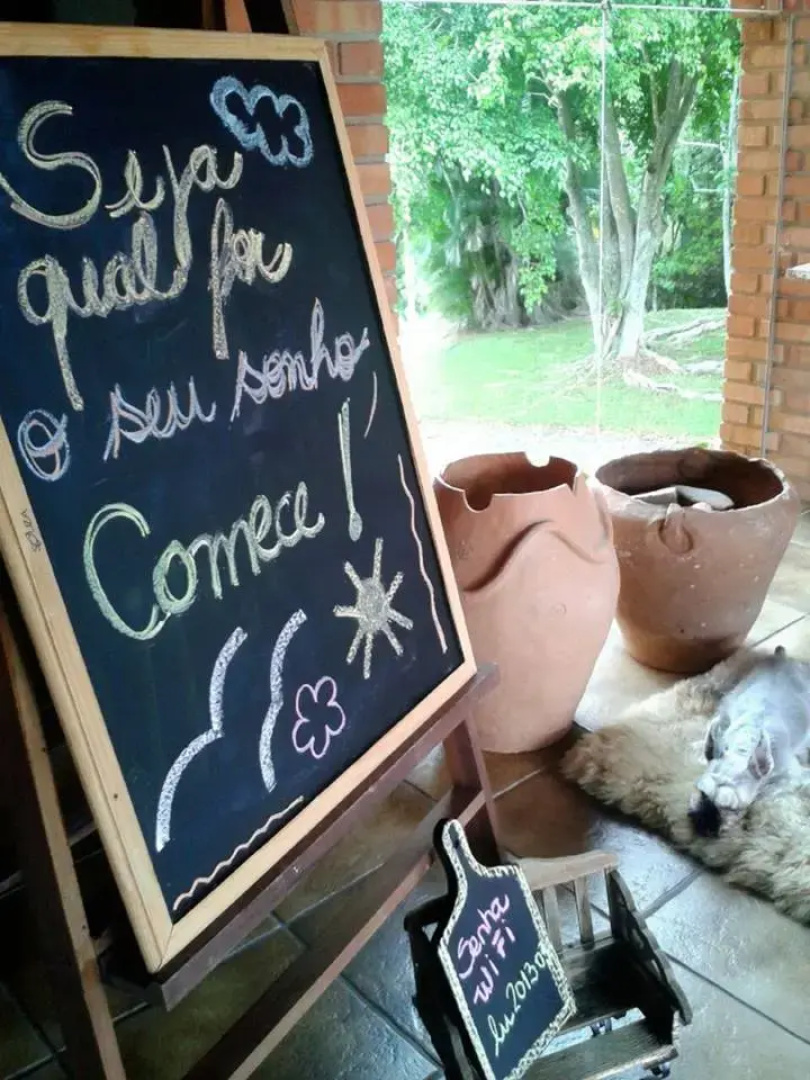 Seja
qual for
o seu sonho
Comece!
Senha
Wi Fi